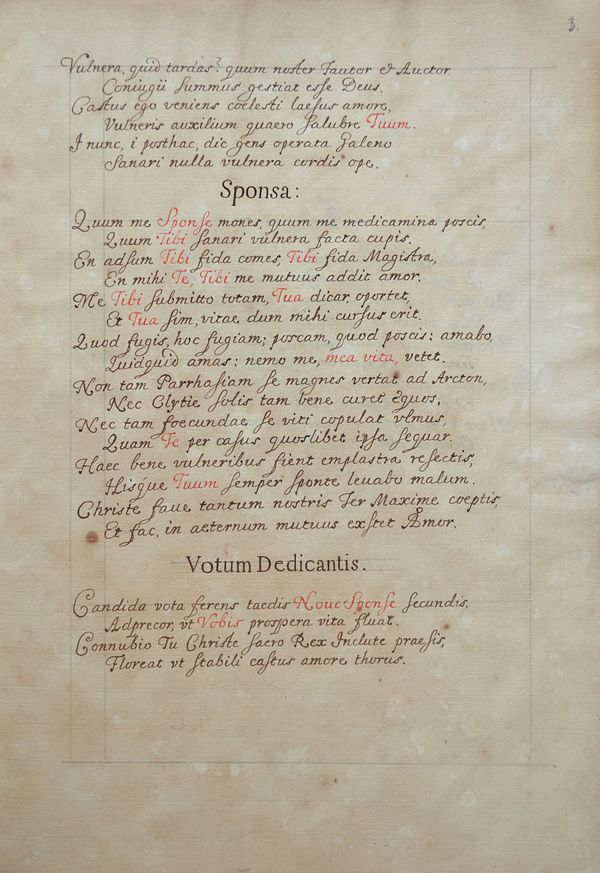 3.
Vulnera, quid tardas? quum noster Fautor & Auctor
Coniugii summus gestiat esse Deus.
Castus ego veniens coelesti laesus amore,
Vulneris auxilium quaero salubre Tuum.
I nunc, i posthac, dic gens operata Galeno
Sanari nulla vulnera cordis ope.
Sponsa:
Quum me Sponse mones, quum me medicamina poscis,
Quum Tibi sanari vulnera facta cupis.
En adsum Tibi fida comes, Tibi fida Magistra,
En mihi Te, Tibi me mutuus addit amor.
Me Tibi submitto totam, Tua dicar, oportet,
Et Tua sim, vitae dum mihi cursus erit.
Quod fugis, hoc fugiam; poscam, quod poscis: amabo,
Quidquid amas: nemo me, mea vita, vetet.
Non tam Parrhasiam se magnes vertat ad Arcton,
Nec Clytie solis tam bene curet equos,
Nec tam foecundae se viti copulat vlmus,
Quam Te per casus quoslibet ipsa sequar.
Haec bene vulneribus fient emplastra resectis,
Hisque Tuum semper sponte leuabo malum.
Christe faue tantum nostris Ter Maxime coeptis,
Et fac, in aeternum mutuus exstet Amor.
Votum Dedicantis.
Candida vota ferens taedis Noue Sponse secundis,
Adprecor, vt Vobis prospera vita fluat.
Connubio Tu Christe sacro Rex Inclute praesis,
Floreat vt stabili castus amore thorus.